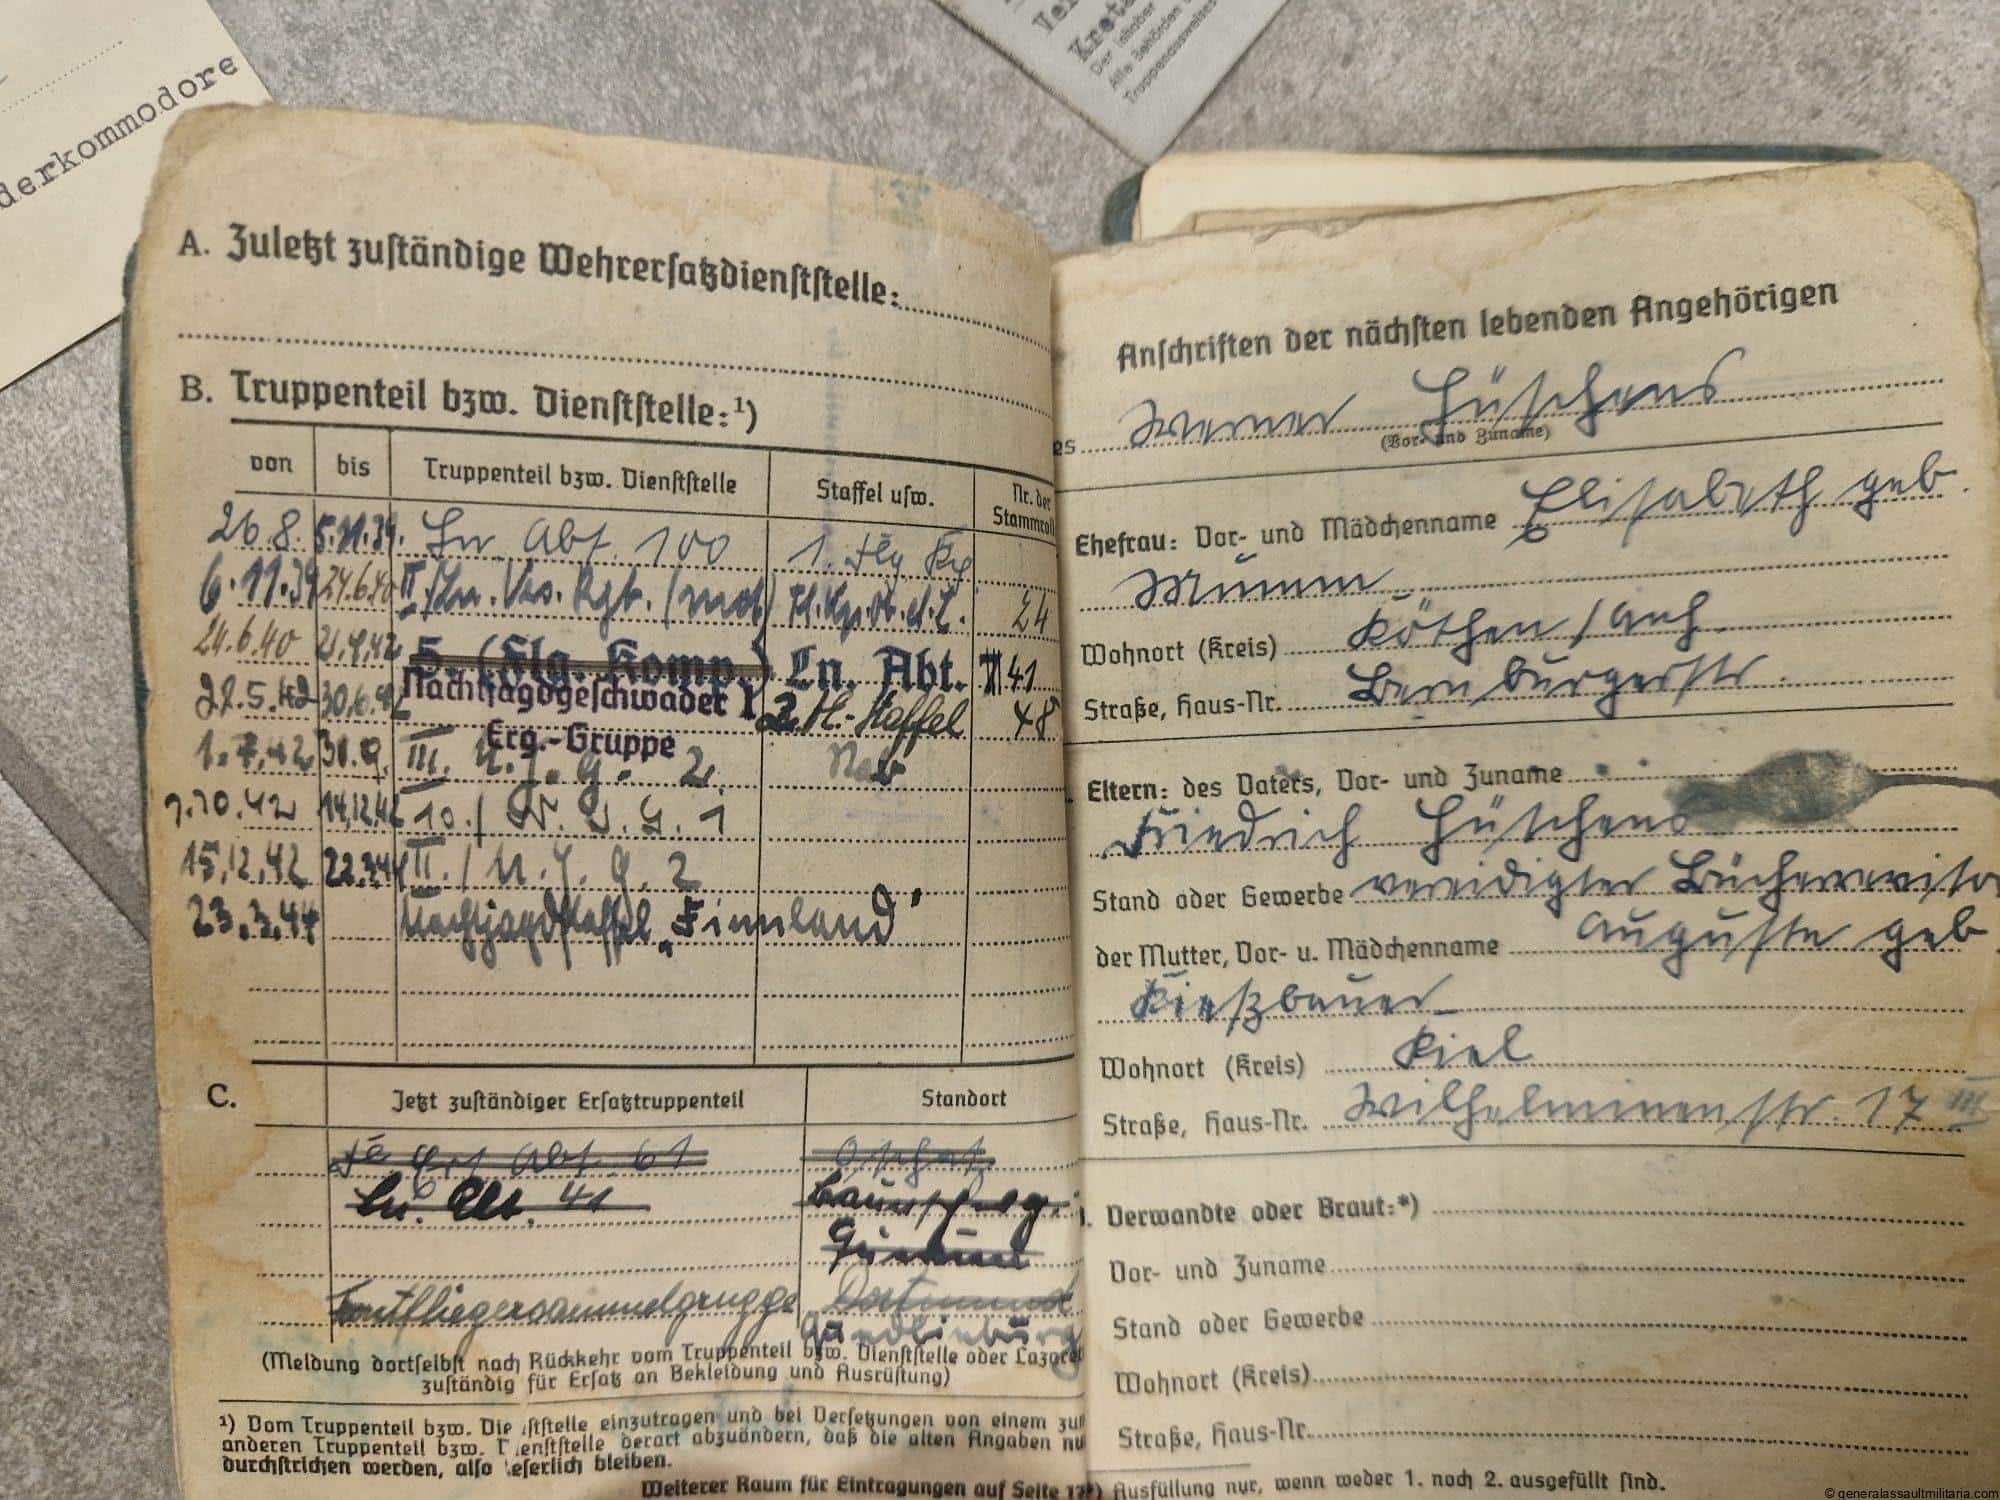 derkommodore
Kreta
Der Inhaber
Alle Behörden
Truppenausweises
A. Zuletzt zuständige Wehrersatzdienststelle:
B. Truppenteil bzw. Dienststelle:¹)
von bis Truppenteil bzw. Dienststelle Staffel usw. Nr. der Stammroll
26.8. 5.11.39. Ln. Abt. 100 1.
6.11.39 24.6.40 II./Ln. Rgt. (mot) 24
24.6.40 21.4.42 5. (Flg. Komp.) Ln. Abt. 41
22.5.42 30.6.42 Nachtjagdgeschwader 1 2. H.-Staffel 48
Erg.-Gruppe
1.7.42 30.9. III. N.J.G. 2.
1.10.42 14.12.42 10./N.J.G. 1
15.12.42 22.3.44 II./N.J.G. 2
23.3.44 Nachtjagdstaffel „Finnland"
C. Jetzt zuständiger Ersatztruppenteil Standort
Abt. 61
Ln. 41
Frontfliegersammelgruppe Dortmund
Quedlinburg
(Meldung dortselbst nach Rückkehr vom Truppenteil bzw. Dienststelle oder Lazaret
zuständig für Ersatz an Bekleidung und Ausrüstung)
¹) Vom Truppenteil bzw. Die ststelle einzutragen und bei Versetzungen von einem zu
anderen Truppenteil bzw. D enststelle derart abzuändern, daß die alten Angaben nu
durchstrichen werden, also leserlich bleiben.
Weiterer Raum für Eintragungen auf Seite 17
Anschriften der nächsten lebenden Angehörigen
es Werner Hüschens
(Vor- und Zuname)
Ehefrau: Vor- und Mädchenname Elisabeth geb.
Mumm
Wohnort (Kreis) Köthen / Anh.
Straße, Haus-Nr. Bernburgerstr.
Eltern: des Vaters, Vor- und Zuname
Friedrich Hüschens
Stand oder Gewerbe vereidigter Bücherreviso
der Mutter, Vor- u. Mädchenname Auguste geb.
Kießbauer
Wohnort (Kreis) Kiel
Straße, Haus-Nr. Wilhelminenstr. 17 III
Verwandte oder Braut:*)
Vor- und Zuname
Stand oder Gewerbe
Wohnort (Kreis)
Straße, Haus-Nr.
*) Ausfüllung nur, wenn weder 1. noch 2. ausgefüllt sind.
© generalassaultmilitaria.com